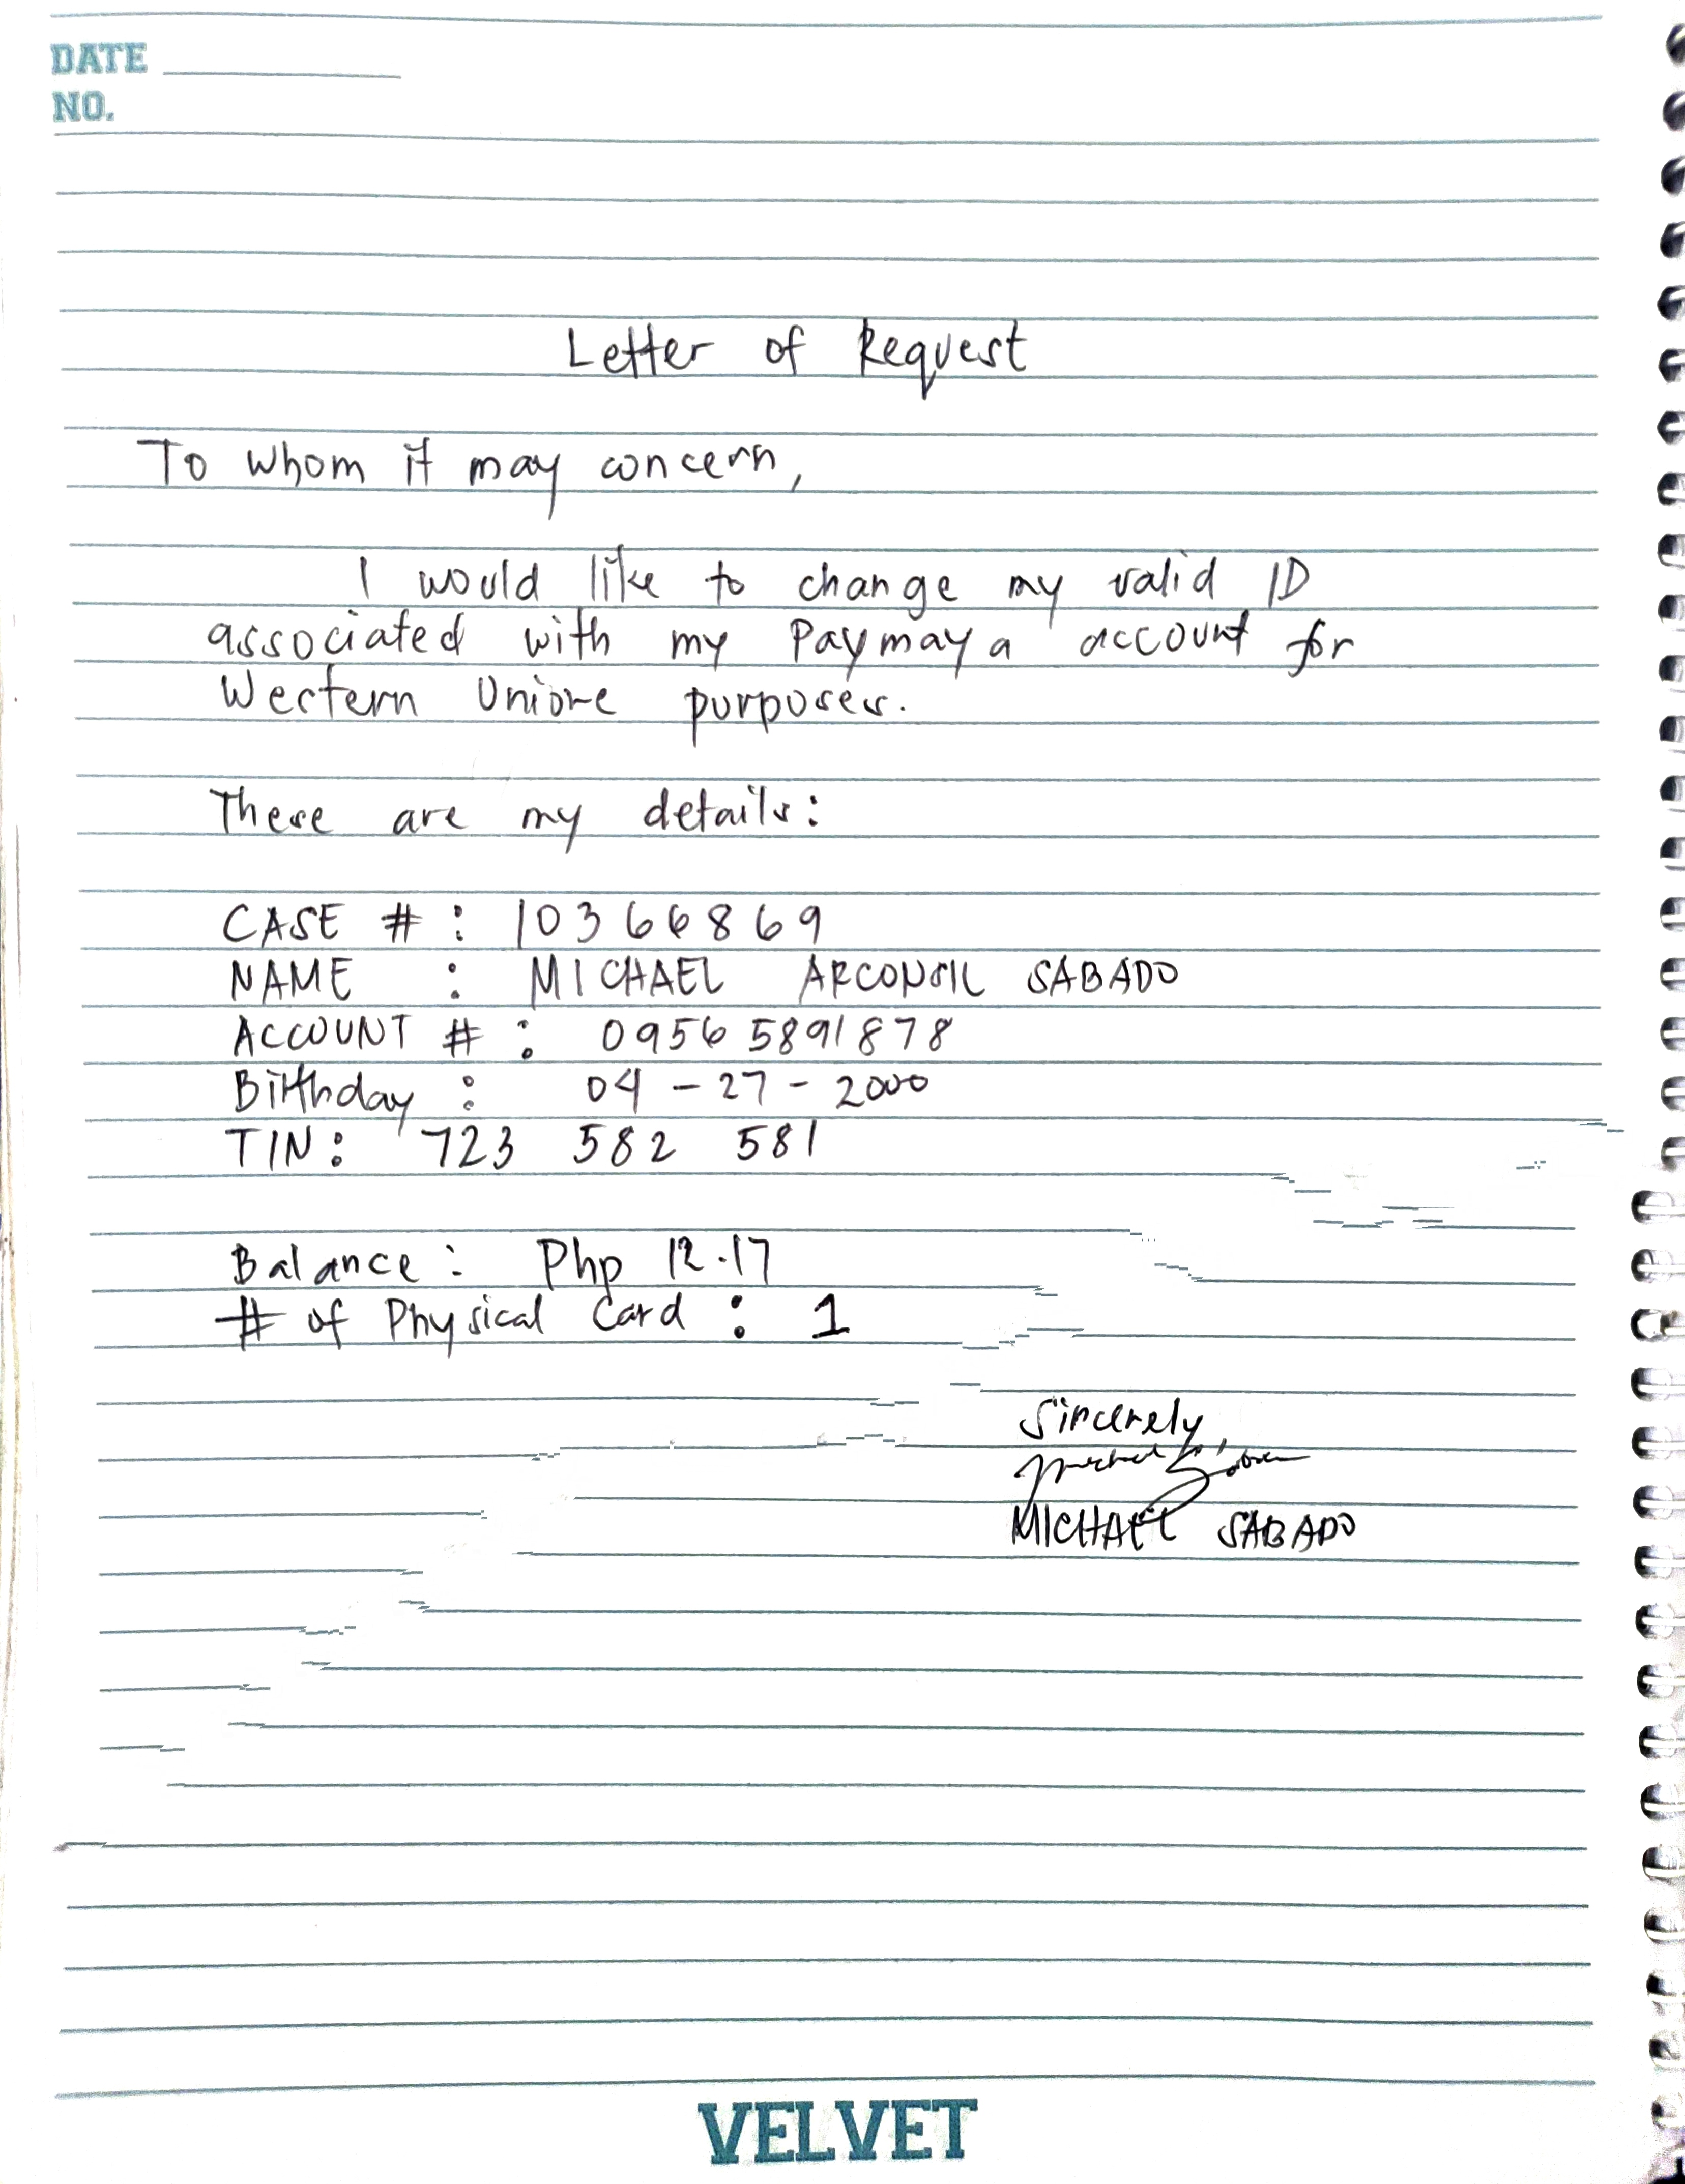 DATE
NO.
Letter of Request
To whom it may concern,
I would like to change my valid ID
associated with my Paymaya account for
Western Unione purposes.
These are my details:
CASE # : 10366869
NAME : MICHAEL ARCONSIL SABADO
ACCOUNT # : 09565891878
Birthday : 04 - 27 - 2000
TIN: 723 582 581
Balance : Php 12.17
# of Physical Card : 1
Sincerely,
MICHAEL SABADO
VELVET